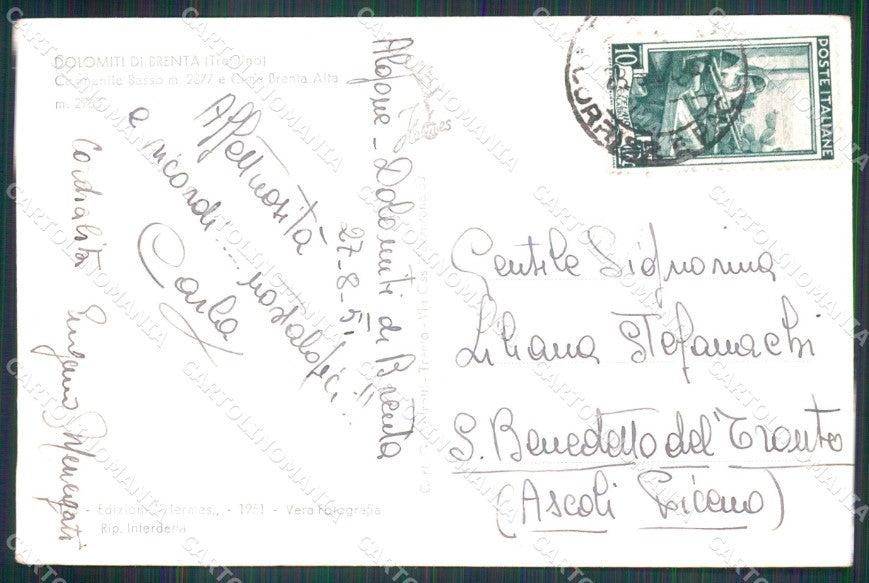 DOLOMITI DI BRENTA (Trentino)
Campanile Basso m. 2877 e Cima Brenta Alta
m. 2960
Affettuosità
e ricordi .... nostalgici!..
Carla
Cordialità
Eugenio
Dolomiti di Brenta
27-8-51
Hermes
- Edizioni "Hermes" - 1951 - Vera Fotografia
Rip. Interdetta
POSTE ITALIANE
10
Gentile Signorina
Liliana Stefanachi
S. Benedetto del Tronto
(Ascoli Piceno)
CARTOLINOMANIA